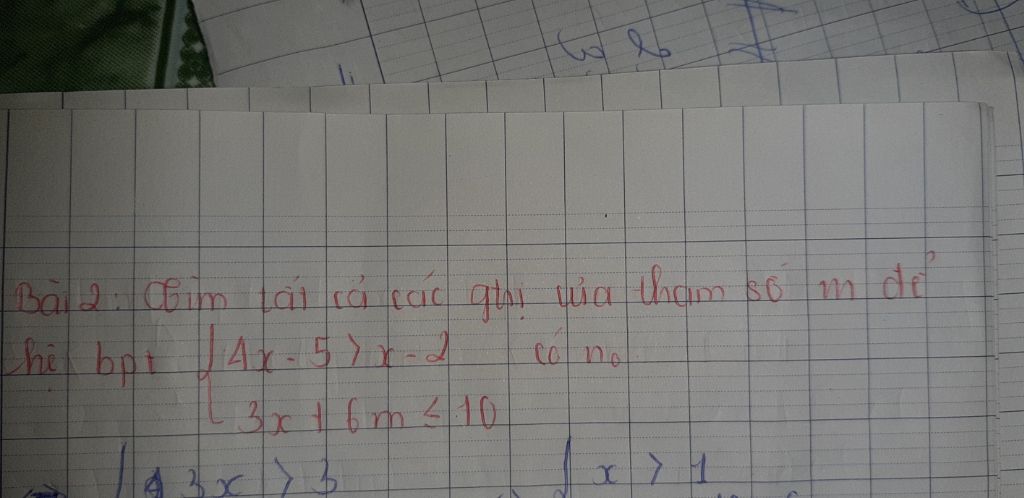 Bài 2: Tìm tất cả các gtrị của tham số m để
hệ bpt { 4x - 5 > x - 2 có no
3x + 6m ≤ 10
⇔ { 3x > 3 ⇔ { x > 1